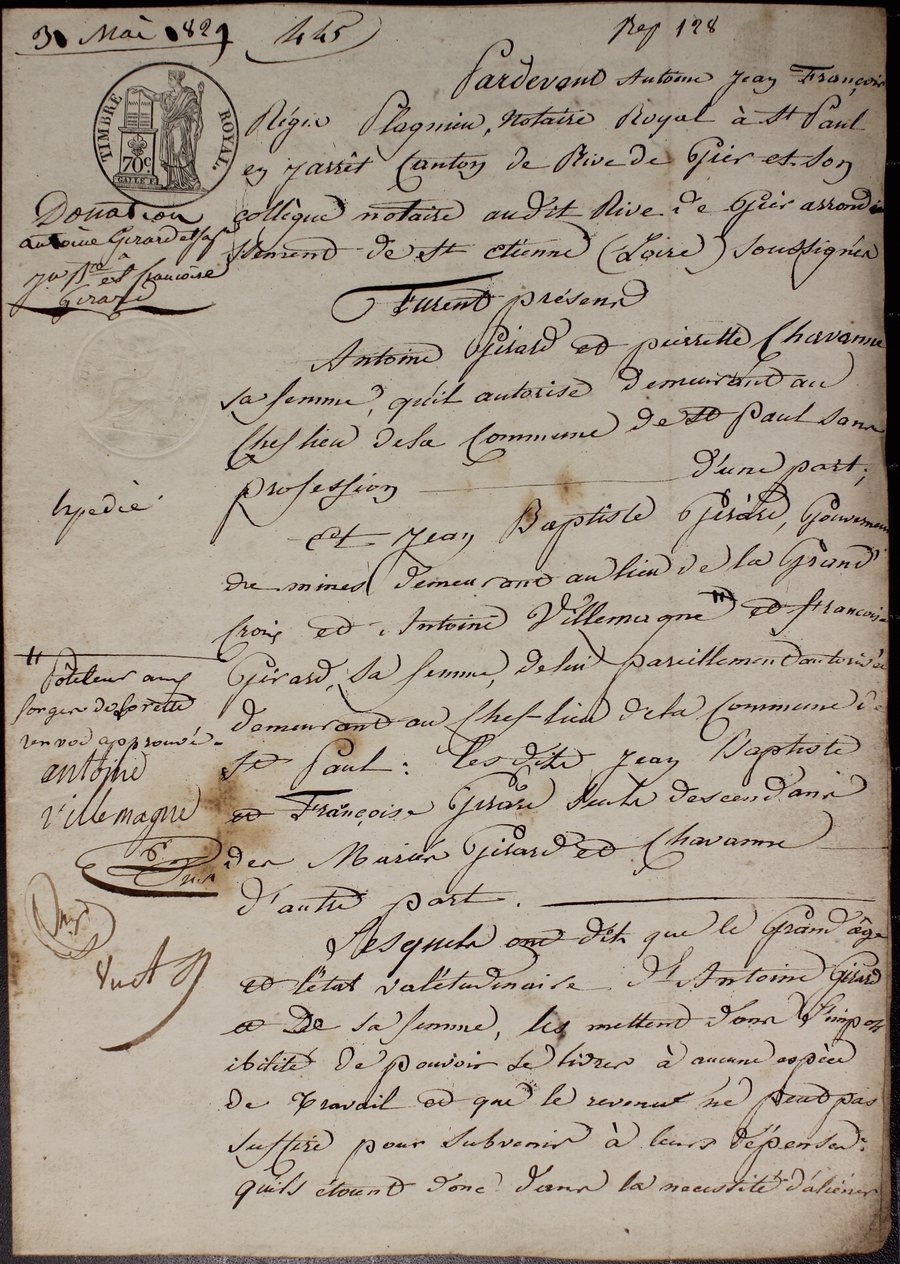 3 Mai 1829 445 Rep 128
TIMBRE ROYAL.
70c
Donation
antoine Girard et sa fe
à
jn Bte et francoise
Girard
Expedié
Pardevant Antoine Jean François
Régis Plagnieu, Notaire Royal à St Paul
en jarrêt Canton de Rive de Gier et son
collègue notaire audit Rive de Gier arrondi
ssement de St Etienne (Loire) soussignés
Furent présens
Antoine Girard et pierrette Chavanne
sa femme, qu'il autorise demeurant au
Chef lieu de la Commune de St Paul sans
profession d'une part;
Et Jean Baptiste Girard, Gouverneur
de mines demeurant au lieu de la Grand
Croix et Antoine Villemagne " et francoise
Girard, sa femme, de lui pareillement autorisée
demeurant au Chef-lieu de la Commune de
St Paul : lesdits Jean Baptiste
et Françoise Girard seuls descendans
des Mariés Girard et Chavanne
d'autre part.
" Rôtteur aux
forges de Lorette
renvoi approuvé.
antoine
villemagne
Lesquels ont dit que le Grand âge
et l'état valétudinaire dt Antoine Girard
et De sa femme, les mettent dans l'impos
ibilité de pouvoir se livrer à aucune espèce
de travail et que le revenu ne peut pas
suffire pour subvenir à leurs dépenses:
qu'ils étoient donc dans la necessité d'aliéner